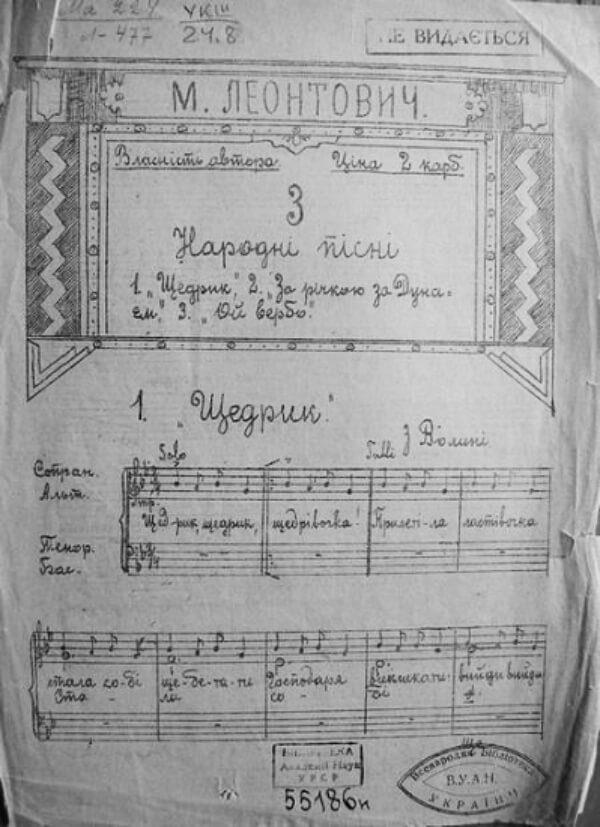 Ма 224 УКШ
Л-477 24.8
НЕ ВИДАЄТЬСЯ
М. ЛЕОНТОВИЧ.
Власність автора. Ціна 2 карб.
3
Народні пісні
1. „Щедрик“, 2. „За річкою за Дуна=
єм“, 3. „Ой вербо“.
1. „Щедрик.“
З Волині
Solo Tutti
Сопран.
Альт.
mp
Щед-рик, щедрик, щедрівочка! Прилеті-ла ластівочка
Тенор.
Бас.
стала со-бі ще-бе-та-ти Господаря викликати: вийди вийди
Ста - ла со - бі
Академії Наук
УРСР
55186н
Всенародня Бібліотека
В.У.А.Н.
УКРАЇНИ